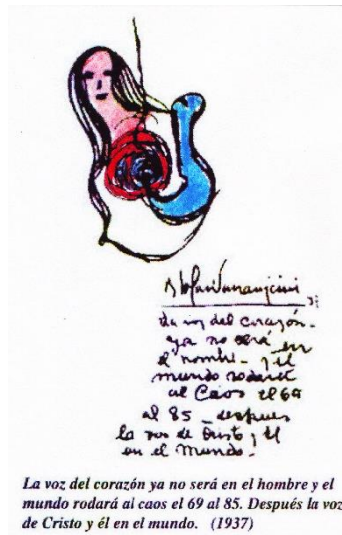 B Solari Parravicini 37
La voz del corazón -
ya no será en
el hombre - y el
mundo rodará
al Caos el 69
al 85 - despues
la voz de Cristo y El
en el mundo -
La voz del corazón ya no será en el hombre y el
mundo rodará al caos el 69 al 85. Después la voz
de Cristo y él en el mundo. (1937)